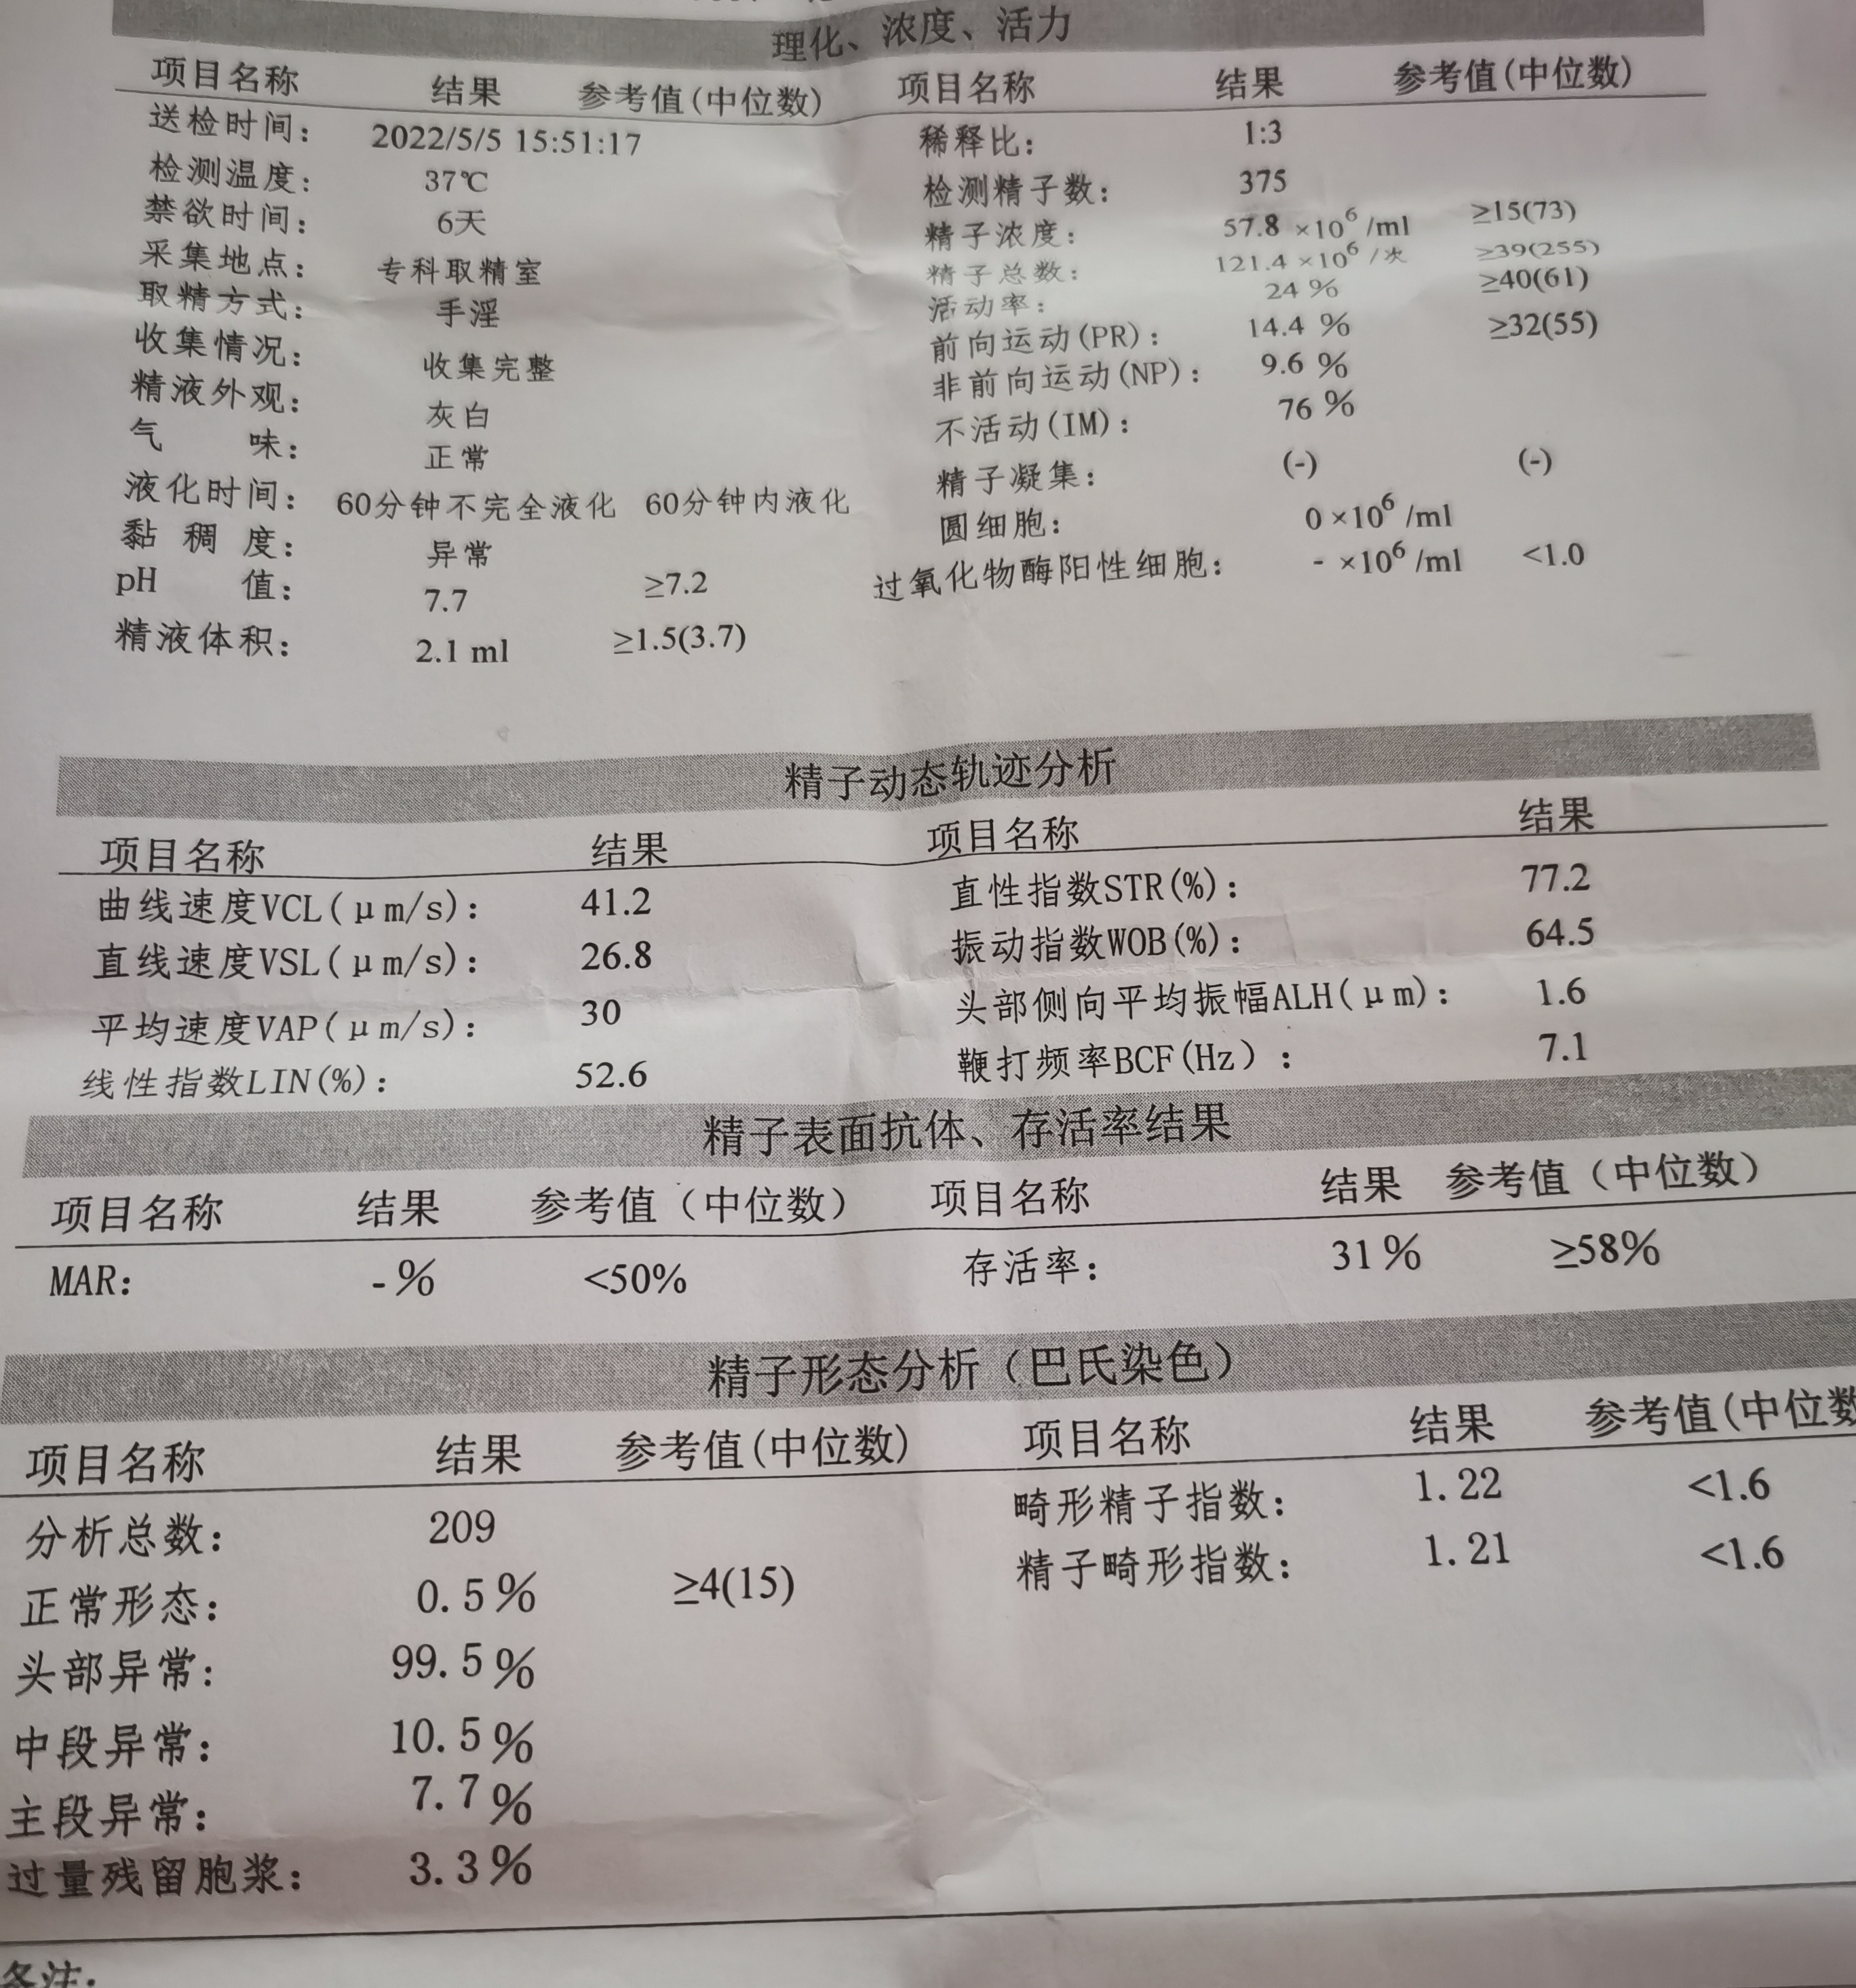 理化、浓度、活力
项目名称 结果 参考值(中位数) 项目名称 结果 参考值(中位数)
送检时间: 2022/5/5 15:51:17 稀释比: 1:3
检测温度: 37℃ 检测精子数: 375
禁欲时间: 6天 精子浓度: 57.8 ×10⁶ /ml ≥15(73)
采集地点: 专科取精室 精子总数: 121.4 ×10⁶ /次 ≥39(255)
取精方式: 手淫 活动率: 24 % ≥40(61)
收集情况: 收集完整 前向运动(PR): 14.4 % ≥32(55)
精液外观: 灰白 非前向运动(NP): 9.6 %
气 味: 正常 不活动(IM): 76 %
液化时间: 60分钟不完全液化 60分钟内液化 精子凝集: (-) (-)
黏 稠 度: 异常 圆细胞: 0 ×10⁶ /ml
pH 值: 7.7 ≥7.2 过氧化物酶阳性细胞: - ×10⁶ /ml <1.0
精液体积: 2.1 ml ≥1.5(3.7)
精子动态轨迹分析
项目名称 结果 项目名称 结果
曲线速度VCL(μm/s): 41.2 直性指数STR(%): 77.2
直线速度VSL(μm/s): 26.8 振动指数WOB(%): 64.5
平均速度VAP(μm/s): 30 头部侧向平均振幅ALH(μm): 1.6
线性指数LIN(%): 52.6 鞭打频率BCF(Hz): 7.1
精子表面抗体、存活率结果
项目名称 结果 参考值（中位数） 项目名称 结果 参考值（中位数）
MAR: -% <50% 存活率: 31% ≥58%
精子形态分析（巴氏染色）
项目名称 结果 参考值(中位数) 项目名称 结果 参考值(中位数
分析总数: 209 畸形精子指数: 1.22 <1.6
正常形态: 0.5% ≥4(15) 精子畸形指数: 1.21 <1.6
头部异常: 99.5%
中段异常: 10.5%
主段异常: 7.7%
过量残留胞浆: 3.3%
备注: